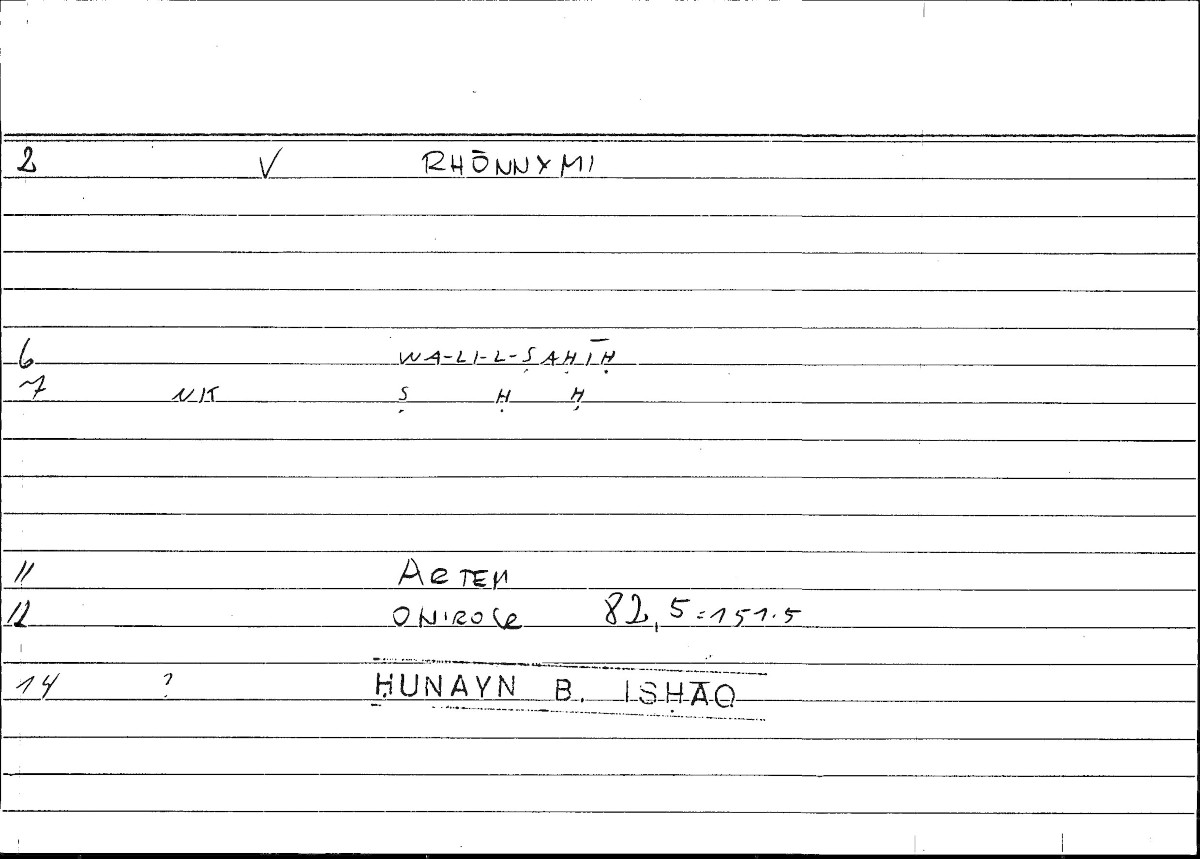 2 V RHŌNNYMI
6 WA-LI-L-ṢAḤĪḤ
7 NK Ṣ Ḥ Ḥ
11 ARTEM
12 ONIROCR 82,5=151.5
14 ? ḤUNAYN B. ISḤĀQ